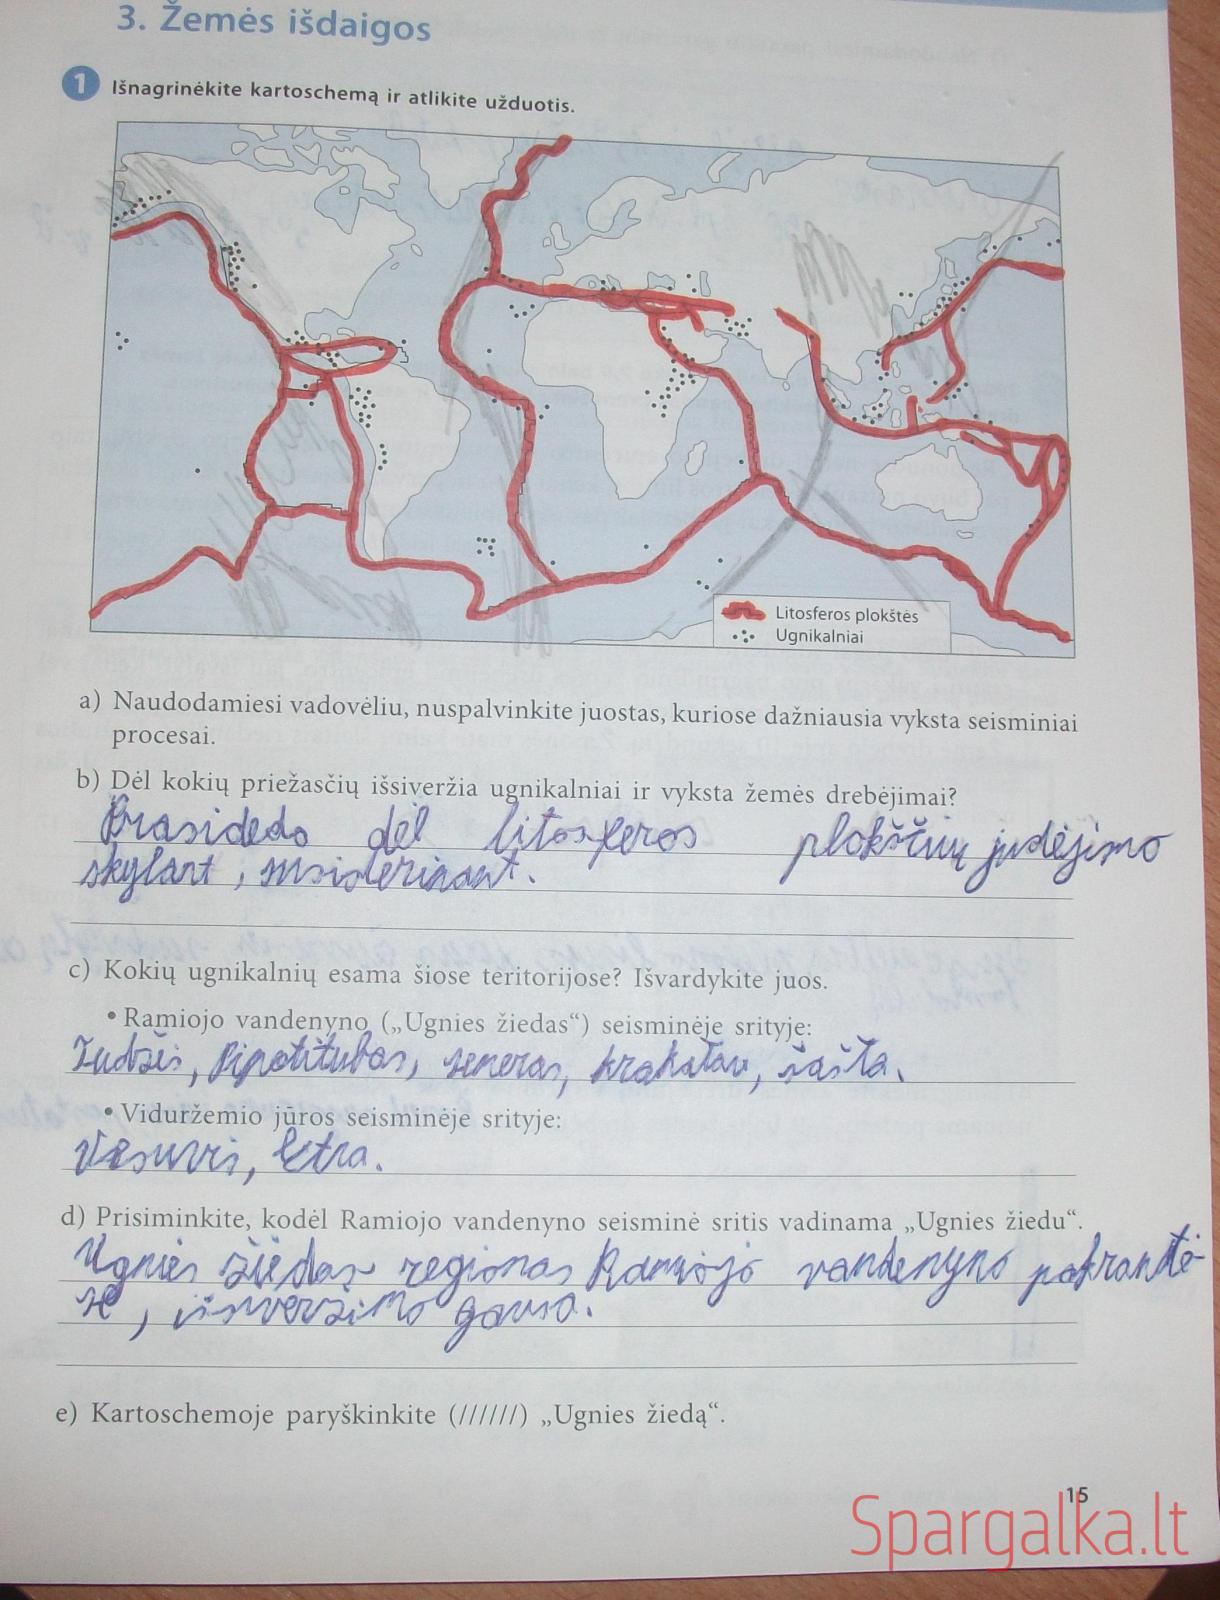 3. Žemės išdaigos
1 Išnagrinėkite kartoschemą ir atlikite užduotis.
Litosferos plokštės
Ugnikalniai
a) Naudodamiesi vadovėliu, nuspalvinkite juostas, kuriose dažniausia vyksta seisminiai
procesai.
b) Dėl kokių priežasčių išsiveržia ugnikalniai ir vyksta žemės drebėjimai?
Prasideda dėl litosferos plokščių judėjimo
skylant,
c) Kokių ugnikalnių esama šiose teritorijose? Išvardykite juos.
• Ramiojo vandenyno („Ugnies žiedas“) seisminėje srityje:
Fudžis, krakatau, šasta.
• Viduržemio jūros seisminėje srityje:
Vesuvis, Etna.
d) Prisiminkite, kodėl Ramiojo vandenyno seisminė sritis vadinama „Ugnies žiedu“.
Ugnies žiedas regionas Ramiojo vandenyno pakrantė-
se, išsiveržimo gausa.
e) Kartoschemoje paryškinkite (//////) „Ugnies žiedą“.
15
Spargalka.lt